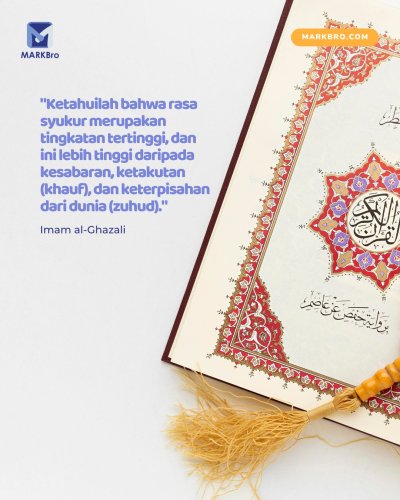 MARKBro
MARKBRO.COM
"Ketahuilah bahwa rasa
syukur merupakan
tingkatan tertinggi, dan
ini lebih tinggi daripada
kesabaran, ketakutan
(khauf), dan keterpisahan
dari dunia (zuhud)."
Imam al-Ghazali
القرآن الكريم
برواية حفص عن عاصم